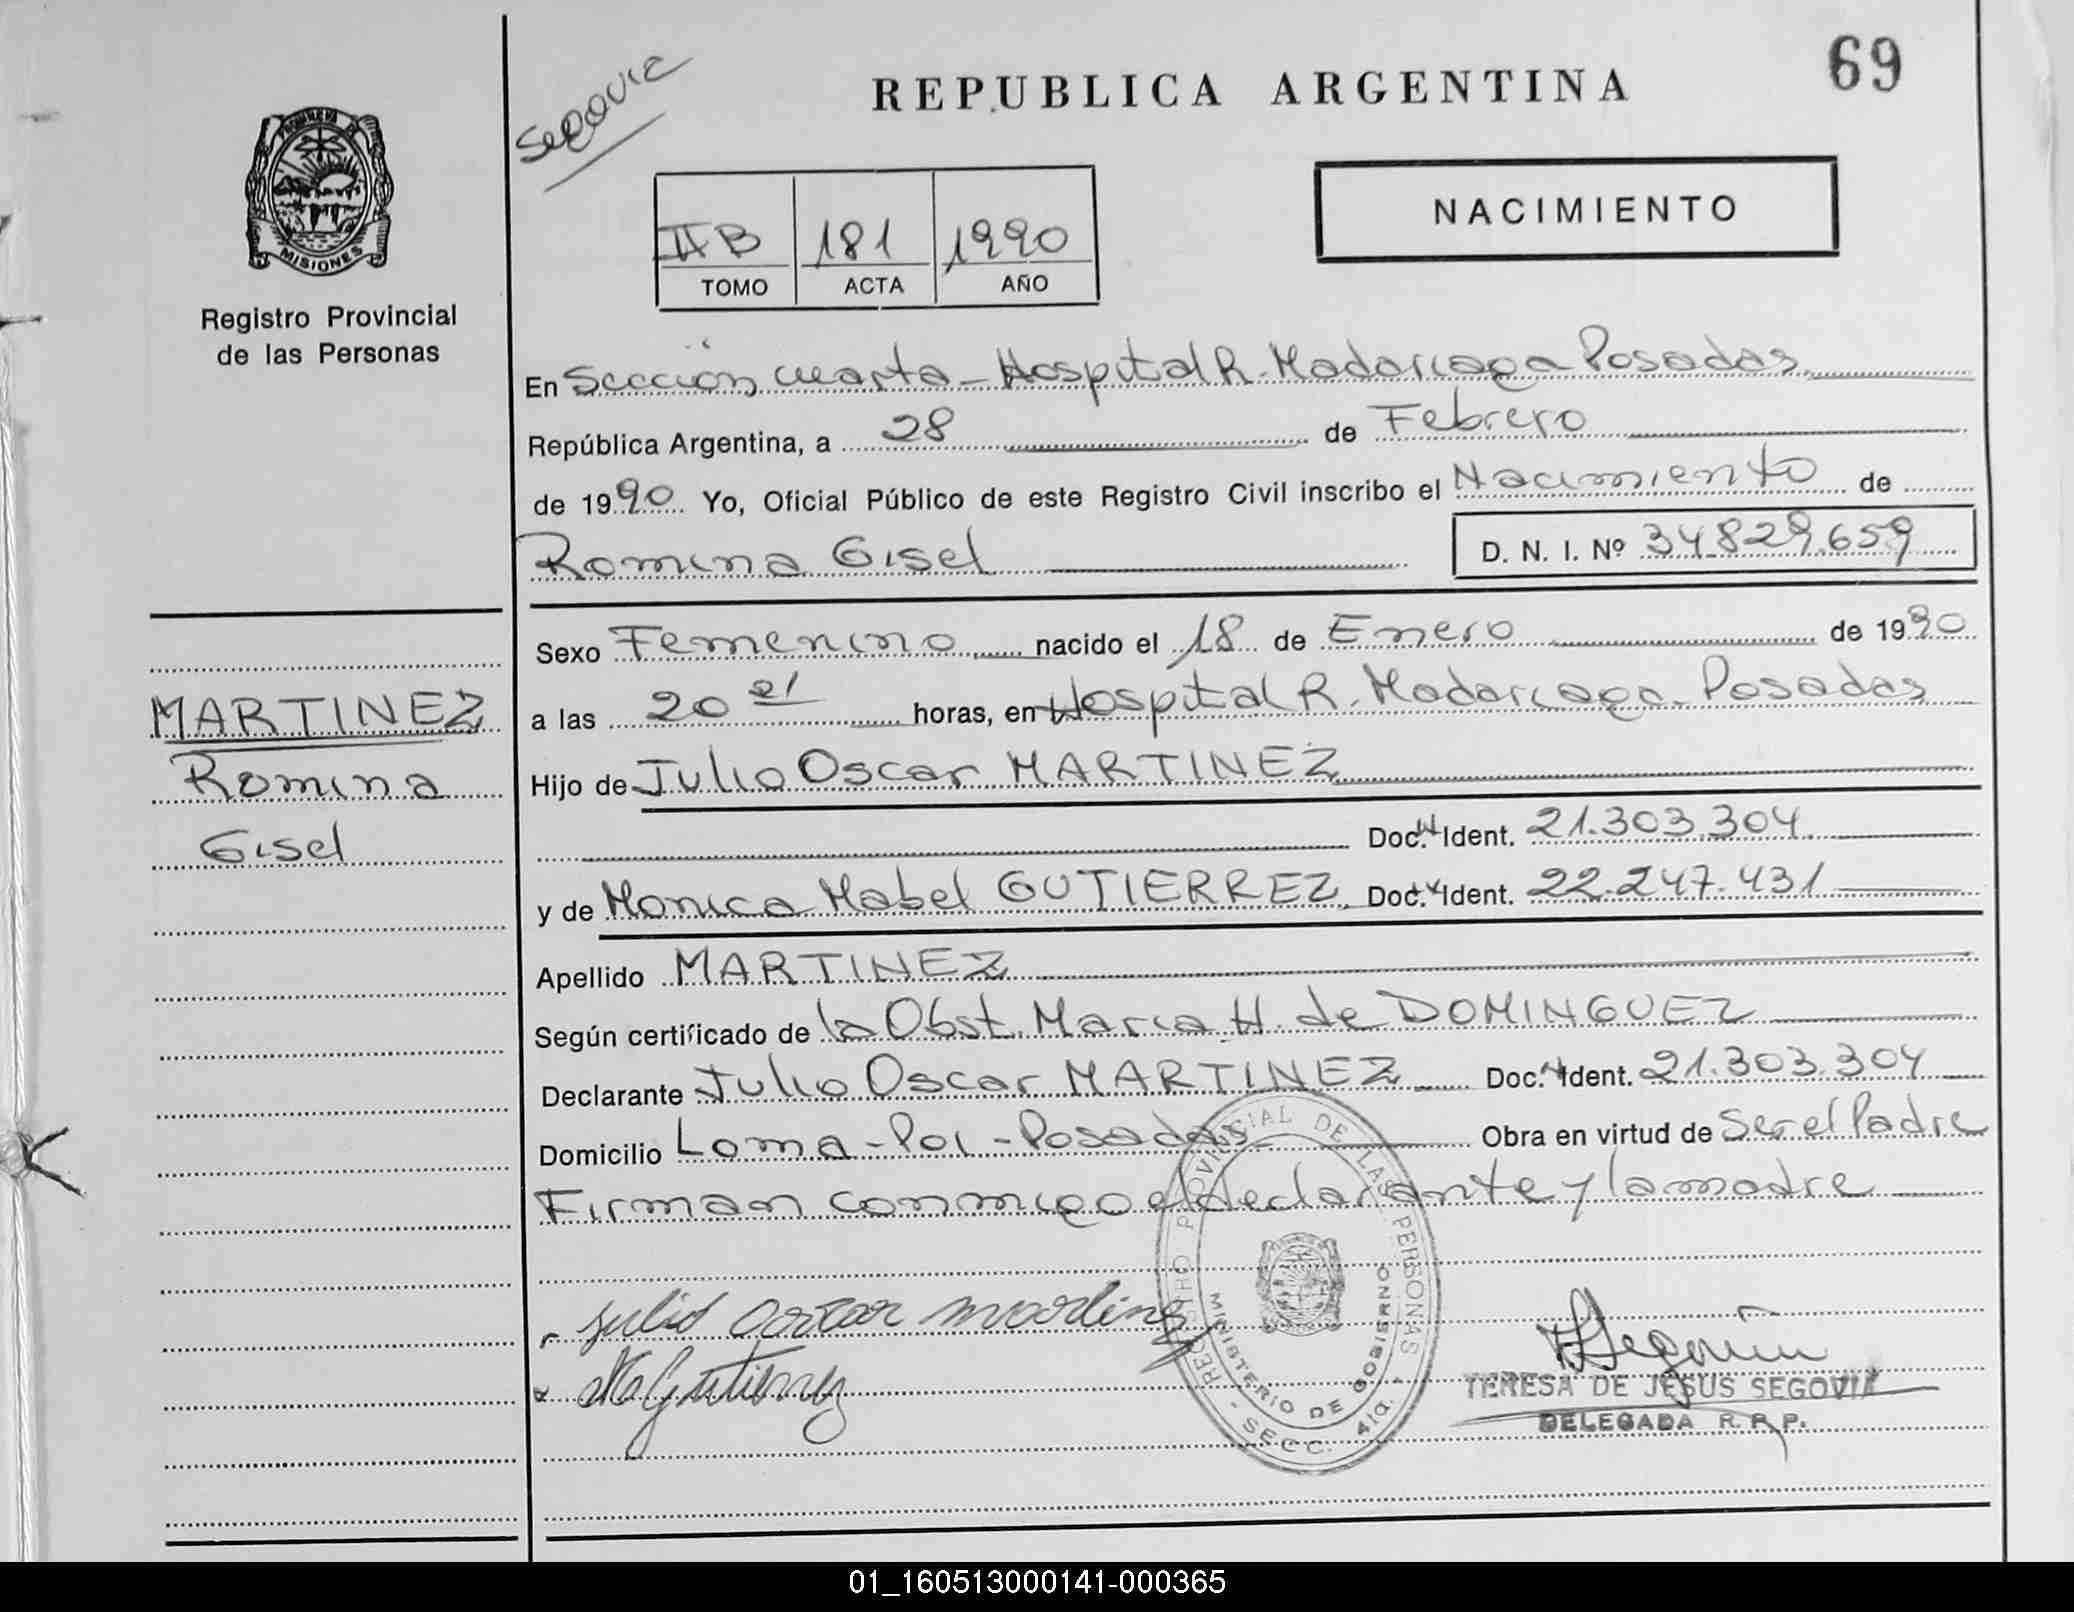 69
Segovia
REPUBLICA ARGENTINA
PROVINCIA DE
MISIONES
Registro Provincial
de las Personas
NACIMIENTO
II B 181 1990
TOMO ACTA AÑO
En Sección cuarta - Hospital R. Madariaga Posadas
República Argentina, a 28 de Febrero
de 1990 Yo, Oficial Público de este Registro Civil inscribo el Nacimiento de
Romina Gisel D. N. I. Nº 34.829.659
Sexo Femenino nacido el 18 de Enero de 1990
a las 20 21 horas, en Hospital R. Madariaga - Posadas
Hijo de Julio Oscar MARTINEZ
Doc. Ident. 21.303.304
y de Monica Mabel GUTIERREZ Doc. Ident. 22.247.431
Apellido MARTINEZ
Según certificado de la Obst. Maria H. de DOMINGUEZ
Declarante Julio Oscar MARTINEZ Doc. Ident. 21.303.304
Domicilio Loma - Poi - Posadas Obra en virtud de Ser el Padre
Firman conmigo el declarante y la madre
MARTINEZ
Romina
Gisel
Julio Oscar Martinez
M Gutierrez
REGISTRO PROVINCIAL DE LAS PERSONAS
MINISTERIO DE GOBIERNO
- SECC. 4ta. -
T Segovia
TERESA DE JESUS SEGOVIA
DELEGADA R. P. P.
01_160513000141-000365